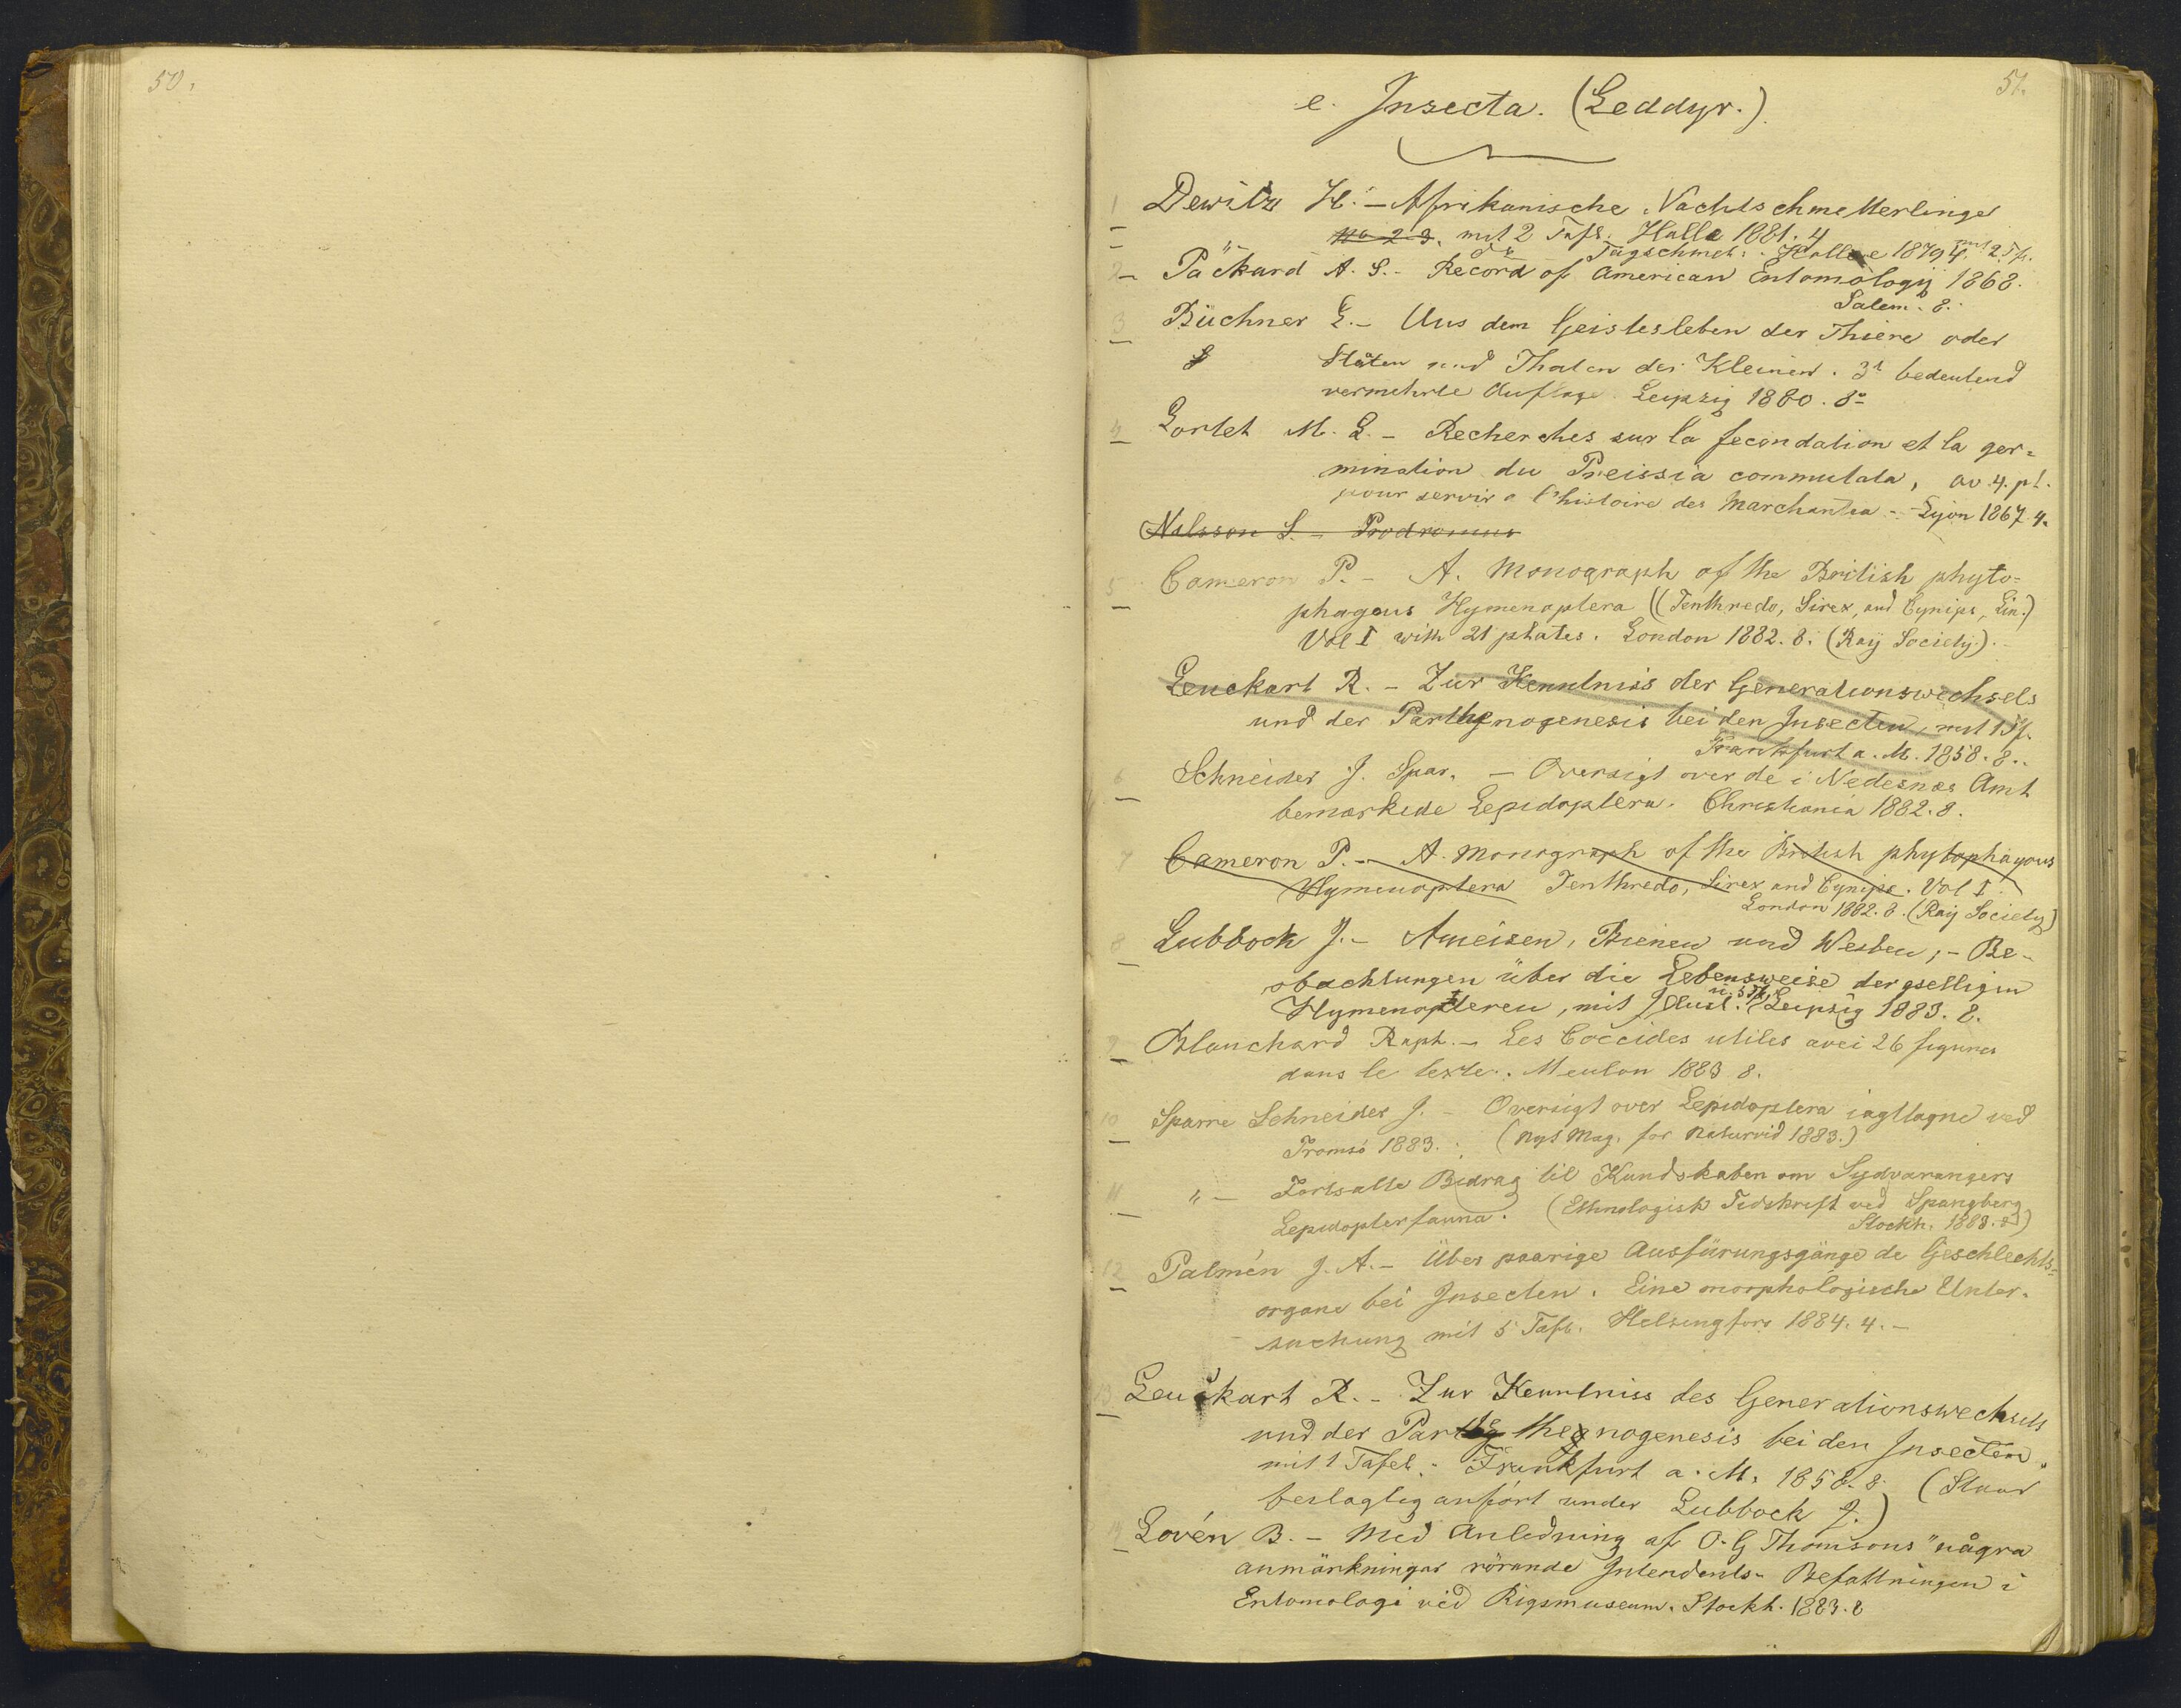 50.
51.
e. Insecta. (Leddyr.)
1 Dewitz H. – Afrikanische Nachtschmetterlinge
No 2-3. mit 2 Tafl. Halle 1881. 4
" – Tagschmet: Halle 1879 4. mit 2 Tfl.
2 Päckard A. S. – Record of American Entomology 1868.
Salem. 8.
3 Büchner L. – Aus dem Geistesleben der Thiere oder
Staten und Thaten der Kleinen. 3t bedeutend
vermehrte Auflage. Leipzig 1880. 8º
4 Lortet M. L. – Recherches sur la fecondation et la ger=
mination du Preissia commutata, av. 4. pl.
pour servir a l'histoire des Marchantea – Lyon 1867 4.
Nilsson S. – Prodromus
5 Cameron P. – A. Monograph of the British phyto=
phagous Hymenoptera ((Tenthredo, Sirex, and Cynips, Lin.)
Vol I with 21 plates. London 1882. 8. (Ray Society).
Leuckart R. – Zur Kenntniss der Generationswechsels
und der Parthenogenesis bei den Insecten, mit 1 Tfl.
Frankfurt a. M. 1858. 8..
6 Schneider J. Spar. – Oversigt over de i Nedesnæs Amt
bemærkede Lepidoptera. Christiania 1882. 8.
7 Cameron P. – A. Monograph of the British phytophagous
Hymenoptera Tenthredo, Sirex and Cynips. Vol I
London 1882. 8. (Ray Society)
8 Lubbock J. – Ameisen, Bienen und Wespen; – Be-
obachtungen über die Lebensweise der geselligen
Hymenopteren, mit Illust. u. 5 Tfl. Leipzig 1883. 8.
9 Blanchard Raph. – Les Coccides utiles avec 26 figures
dans le texte. Meulan 1883 8.
10 Sparre Schneider J. – Oversigt over Lepidoptera iagttagne ved
Tromsö 1883. (Nyt Mag. for Naturvid 1883.)
11 " – Fortsatte Bidrag til Kundskaben om Sydvarangers
Lepidopterfauna. (Ethnologisk Tidskrift ved Spangberg
Stockh. 1883. 8)
12 Palmén J. A. – Über paarige Ausfürungsgänge de Geschlechts=
organe bei Insecten. Eine morphologische Unter-
suchung mit 5 Tafl. Helsingfors 1884. 4. –
13 Leuckart R. – Zur Kenntniss des Generationswechsels
und der Parthenogenesis bei den Insecten.
mit 1 Tafel. Frankfurt a. M. 1858. 8. (Staar
beslaglig anfört under Lubbock J.)
14 Lovén B. – Med Anledning af O. G Thomsons "några
anmärkningar rörande Intendents- Befattningen i
Entomologi vid Rigsmuseum. Stockh. 1883. 8